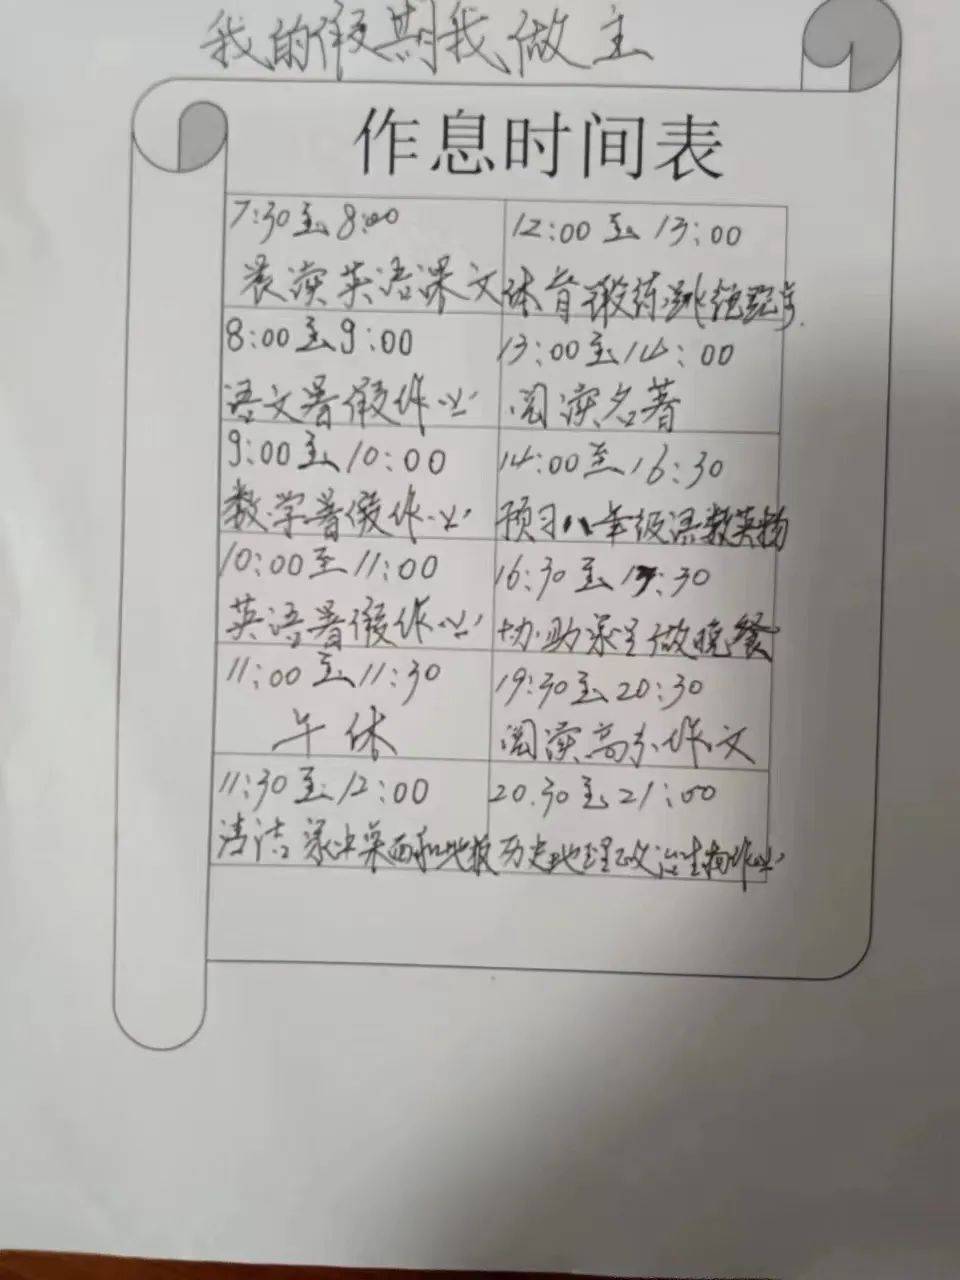 我的假期我做主
作息时间表
7:30至8:00
晨读英语课文
8:00至9:00
语文暑假作业
9:00至10:00
数学暑假作业
10:00至11:00
英语暑假作业
11:00至11:30
午休
11:30至12:00
清洁家中桌面和地板
12:00至13:00
体育锻炼跳绳跑步
13:00至14:00
阅读名著
14:00至16:30
预习八年级语数英物
16:30至17:30
协助家里做晚餐
19:30至20:30
阅读高分作文
20.30至21:00
历史地理政治生物作业